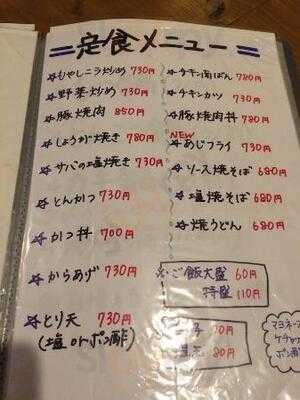 定食メニュー
☆もやしニラ炒め 730円
☆野菜炒め 730円
☆豚焼肉 850円
☆しょうが焼き 780円
☆サバの塩焼き 730円
☆とんかつ 730円
☆かつ丼 700円
☆からあげ 730円
☆とり天 730円
(塩orポン酢)
☆チキン南ばん 780円
☆チキンカツ 730円
☆豚焼肉丼 780円
NEW
☆あじフライ 730円
☆ソース焼そば 680円
☆塩焼そば 680円
☆焼うどん 680円
☆ご飯大盛 60円
特盛 110円
80円
マヨネーズ
ケチャップ
ポン酢